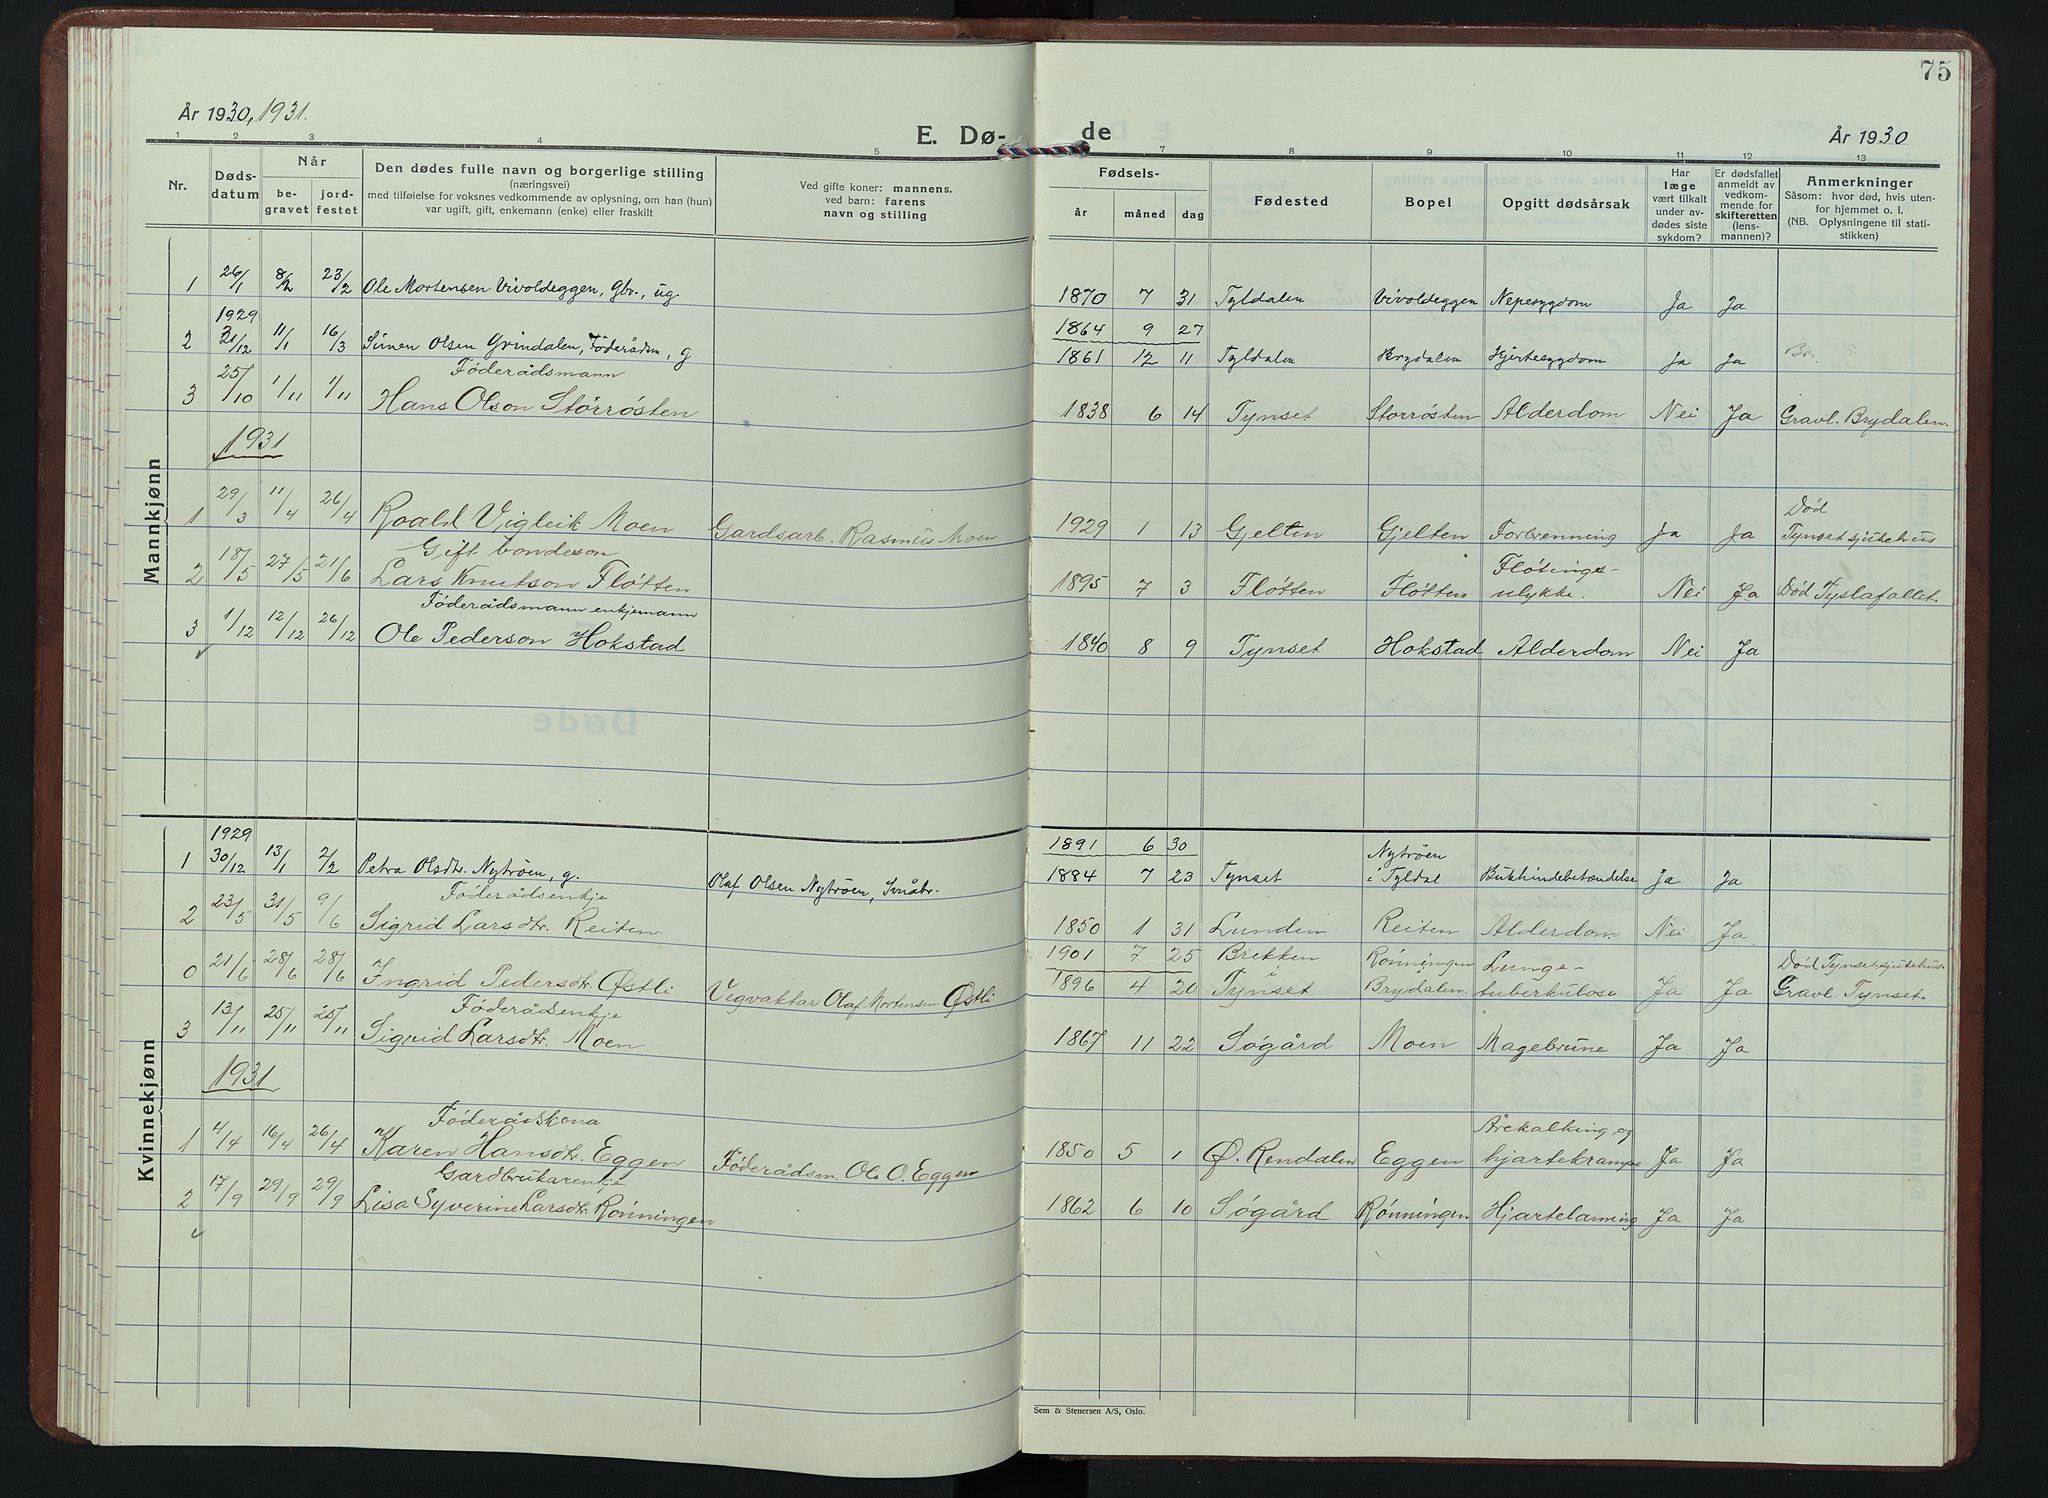 År 1930, 1931.
E. Dø-
1 2 3 4 5
Nr.
Døds-
datum
Når
be-
gravet
jord-
festet
Den dødes fulle navn og borgerlige stilling
(næringsvei)
med tilføielse for voksnes vedkommende av oplysning, om han (hun)
var ugift, gift, enkemann (enke) eller fraskilt
Ved gifte koner: mannens,
ved barn: farens
navn og stilling
Mannkjønn
1 26/1 8/2 23/2 Ole Mortensen Vivoldeggen, Gbr., ug.
1929
2 31/12 11/1 16/3 Simen Olsen Grindalen, Föderådsm, g
Föderådsmann
3 25/10 1/11 1/11 Hans Olson Störrösten
1931
1 29/3 11/4 26/4 Roald Vigleik Moen Gardsarb. Rasmus Moen
Gift bondeson
2 18/5 27/5 21/6 Lars Knutson Fløtten
Föderådsmann enkjemann
3 1/12 12/12 26/12 Ole Pederson Hokstad
Kvinnekjønn
1929
1 30/12 13/1 2/2 Petra Olsdtr. Nytröen, g. Olaf Olsen Nytröen, Småbr.
Föderådsenkje
2 23/5 31/5 9/6 Sigrid Larsdtr. Reiten
0 21/6 28/6 28/6 Ingrid Pedersdtr. Østli Vegvaktar Olaf Mortensen Østli
Föderådsenkje
3 13/11 25/11 25/11 Sigrid Larsdtr. Moen
1931
Föderådskona
1 4/4 16/4 26/4 Karen Hansdtr. Eggen Föderådsm. Ole O. Eggen
Gardbrukarenkje
2 17/9 29/9 29/9 Lisa Syverine Larsdtr. Rönningen
75
de
År 1930
7 8 9 10 11 12 13
Fødsels-
år måned dag
Fødested
Bopel
Opgitt dødsårsak
Har
læge
vært tilkalt
under av-
dødes siste
sykdom?
Er dødsfallet
anmeldt av
vedkom-
mende for
skifteretten
(lens-
mannen)?
Anmerkninger
Såsom: hvor død, hvis uten-
for hjemmet o. l.
(NB. Oplysningene til stati-
stikken)
1870 7 31 Tyldalen Vivoldeggen Nepesygdom Ja Ja
1864 9 27
1861 12 11 Tyldalen Brydalen Hjertesygdom Ja Ja Br.
1838 6 14 Tynset Storrösten Alderdom Nei Ja Gravl. Brydalen.
Død
1929 1 13 Gjelten Gjelten Forbrenning Ja Ja Tynset sjukehus
Fløtings-
1895 7 3 Fløtten Fløtten ulykke. Nei Ja Død Tyslafallet.
1840 8 9 Tynset Hokstad Alderdom Nei Ja
1891 6 30 Nytröen
1884 7 23 Tynset i Tyldal Bukhindebetændelse Ja Ja
1850 1 31 Lunden Reiten Alderdom Nei Ja
1901 7 25 Brekken Rönningen Lunge- Død Tynset sjukehus.
1896 4 20 i Tynset Brydalen. tuberkulose Ja Ja Gravl. Tynset.
1867 11 22 Søgård Moen Magebrune Ja Ja
Årekalking og
1850 5 1 Ø. Rendalen Eggen hjartekrampe Ja Ja
1862 6 10 Søgård Rønningen Hjartelamning Ja Ja
Sem & Stenersen A/S, Oslo.